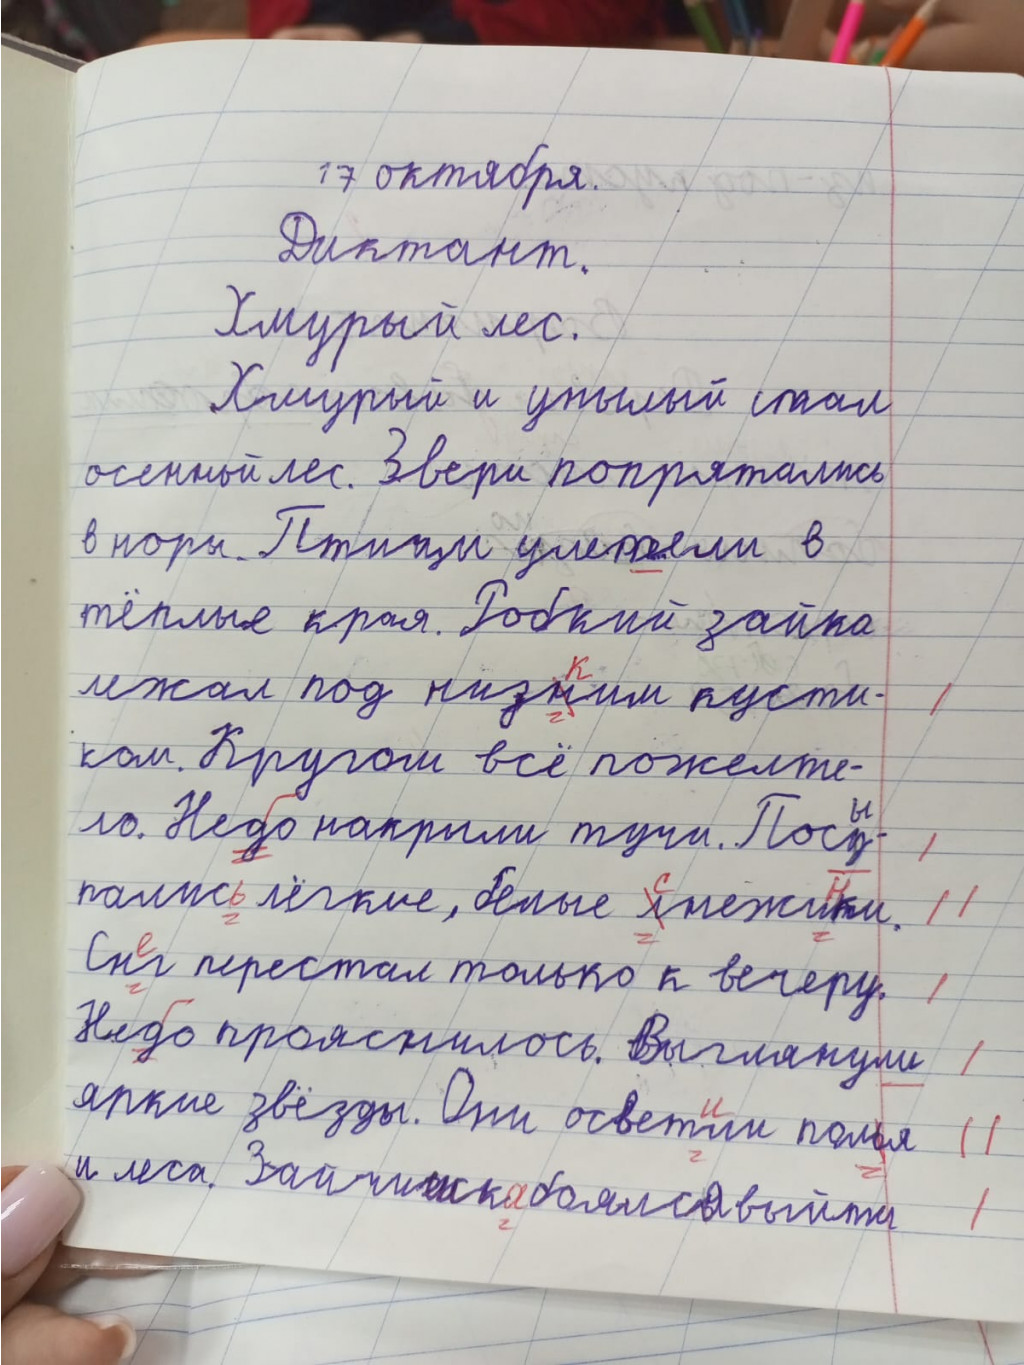 17 октября.
Диктант.
Хмурый лес.
Хмурый и унылый стал
осенный лес. Звери попрятались
в норы. Птицы улетели в
тёплые края. Робкий зайка
лежал под низним кусти-
ком. Кругом всё пожелте-
ло. Недо накрыли тучи. Посы-
пались лёгкие, белые снежинки.
Снег перестал только к вечеру.
Недо прояснилось. Выглянули
яркие звёзды. Они осветили полья
и леса. Зайчишка боялся выйти